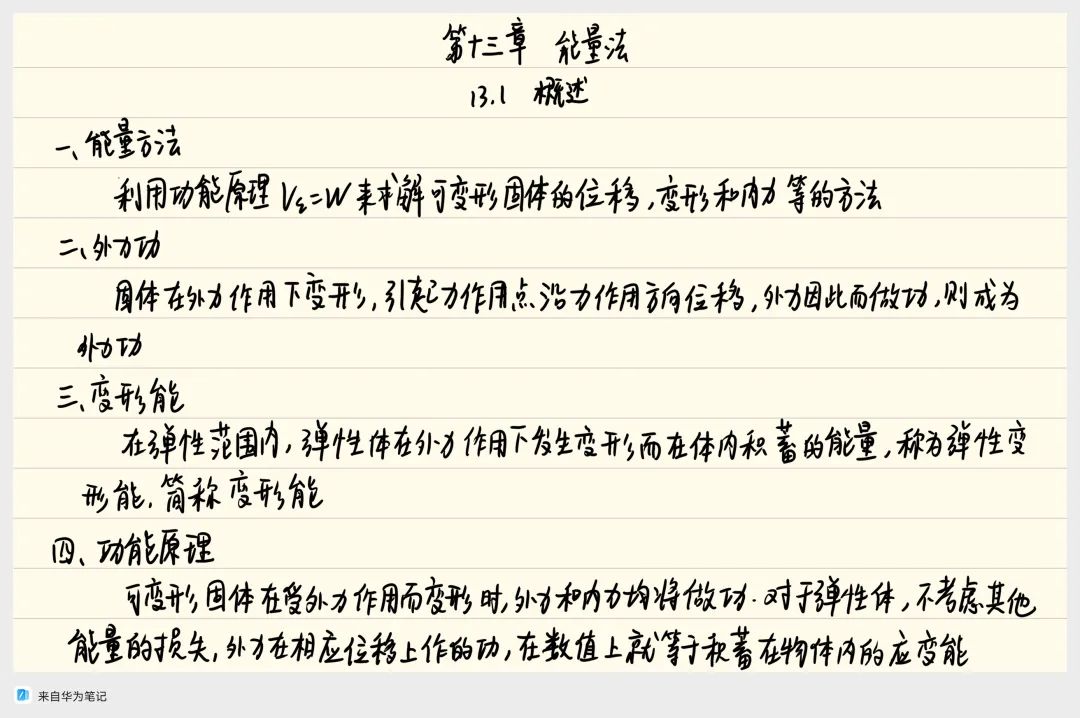 第十三章 能量法
13.1 概述
一、能量方法
利用功能原理 Vε=W 来求解可变形固体的位移,变形和内力等的方法
二、外力功
固体在外力作用下变形,引起力作用点沿力作用方向位移,外力因此而做功,则成为
外力功
三、变形能
在弹性范围内,弹性体在外力作用下发生变形而在体内积蓄的能量,称为弹性变
形能,简称变形能
四、功能原理
可变形固体在受外力作用而变形时,外力和内力均将做功.对于弹性体,不考虑其他
能量的损失,外力在相应位移上作的功,在数值上就等于积蓄在物体内的应变能
来自华为笔记